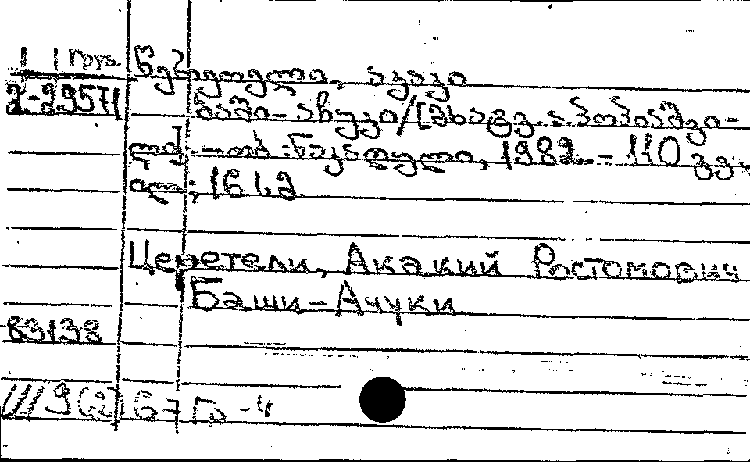 Груз. წერეთელი, აკაკი
2-29571 ბაში-აჩუკი/[მხატვ. ა. პოპიაშვი-
ლი]. -თბ.: ნაკადული, 1982. - 110 გვ.
ილ.; 16 სმ
Церетели, Акакий Ростомович
Баши-Ачуки
83138